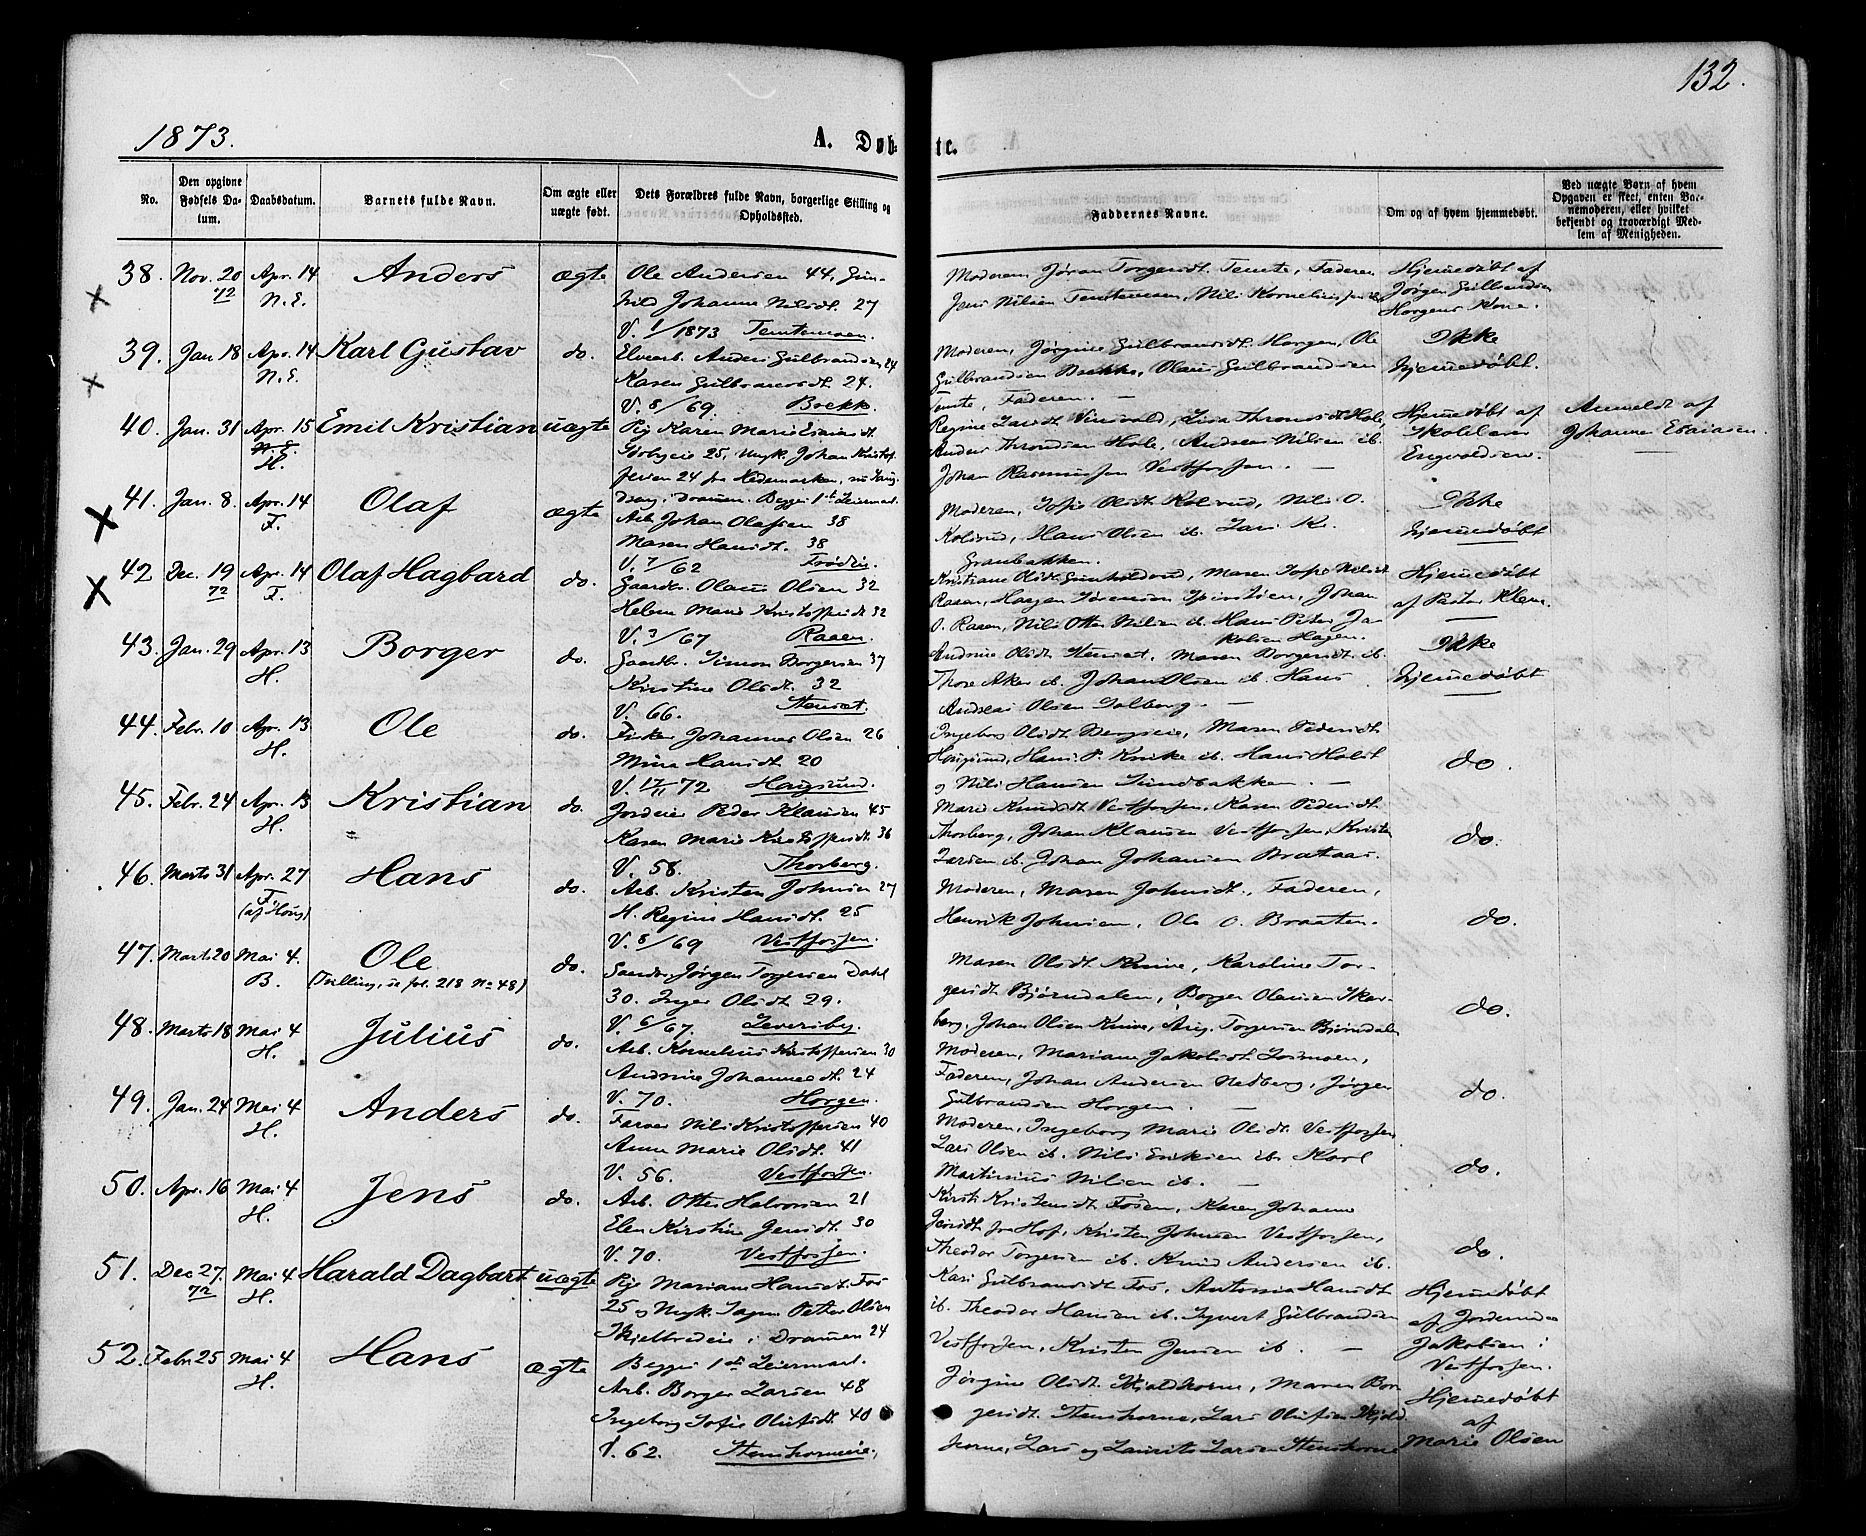 132.
1873.
A. Døb-
te.
No.
Den opgivne Fødsels Datum.
Daabsdatum.
Barnets fulde Navn.
Om ægte eller uægte født.
Dets Forældres fulde Navn, borgerlige Stilling og Opholdssted.
Faddernes Navne.
Om og af hvem hjemmedøbt.
Ved uægte Børn af hvem Opgaven er skeet, enten Barnemoderen, eller hvilket bekjendt og troværdigt Medlem af Menigheden.
38. Nov. 20 72 Apr. 14 N.E. Anders ægte
Ole Andersen 44, Gun-
hild Johanne Nilsdt. 27
V. 1/1873 Temtemoen.
Moderen, Jøran Torgersdt. Temte, Faderen
Jens Nilsen Temtemoen, Nils Kornelius
Hjemmedøbt af
Jørgen Gulbrandsen
Horgens Kone.
39. Jan. 18 Apr. 14 N.E. Karl Gustav do.
Anders Gulbrandsen 24
Karen Gulbrandsdt. 24.
V. 8/69. Bækk.
Moderen, Jørgine Gulbrandsdt. Horgen, Ole
Gulbrandsen Bekke, Olaus Gulbrandsen
Temte, Faderen. —
Ikke
hjemmedøbt.
40. Jan. 31 Apr. 15 N.E. H. Emil Kristian uægte
Pig. Karen Marie Esaiasdt.
25, Ungk. Johan Kristof-
fersen 24 fra Hedemarken, nu
Drammen. Begges 1ste Leiermaal.
Regine Larsdt.
Anders Throndsen Hole, Andreas Nilsen ib.
Johan Rasmussen Vestfossen. —
Hjemmedøbt af
Skolelærer
Engvoldsen.
Anmeldt af
Johannes Esaiasen.
41. Jan. 8. Apr. 14 F. Olaf ægte
Arb. Johan Olafsen 38
Maren Hansdt. 38
V. 7/62
Moderen, Sofie Olsdt. Kolsrud, Nils O.
Kolsrud, Hans Olsen ib. Lars K.
Granbakken.
Ikke
hjemmedøbt
42 Dec. 19 72 Apr. 14 F. Olaf Hagbard do.
Gaardbr. Olaus Olsen 32
Helene Marie Kristoffersdt 32
V. 3/67 Raaen.
Kristiane Olsdt. Maren Sofie Nilsdt
Raaen, Haagen Sørensen Johan
O. Raaen, Nils Otto Nilsen ib. Hans Peter Ja-
kobsen Hagen.
Hjemmedøbt
af Pastor Klem.
43. Jan. 29 Apr. 13 H. Borger do.
Gaardbr. Simon Borgersen 37
Kristine Olsdt. 32
V. 66. Stenset.
Andrine Olsdt. Stenset, Maren Borgersdt. ib.
Thore Aker ib. Johan Olsen ib. Hans
Andreas Olsen Solberg. —
Ikke
hjemmedøbt
44. Febr. 10 Apr. 13 H. Ole do.
Johannes Olsen 26
Mina Hansdt. 20
V. 17/11 72 Hougsund.
Ingeborg Olsdt. Maren Pedersdt
Hougsund, Hans P. Knive ib. Hans Holst
og Nils Hansen Sundbakken. —
do.
45. Febr. 24 Apr. 13 H. Kristian do.
Peder Klausen 45
Karen Marie Kristoffersdt. 36
V. 58. Thorberg.
Marie Knudsdt. Vestfossen, Karen Pedersdt.
Thorberg, Johan Klausen Vestfossen, Kristen
Larsen ib. Johan Johansen Brataas.
do.
46. Marts 31 Apr. 27 F. (af Houg) Hans do.
Arb. Kristen Johnsen 27
H. Regine Hansdt. 25
V. 8/69 Vestfossen.
Moderen, Maren Johnsdt., Faderen,
Henrik Johnsen, Ole O. Braaten.
do.
47. Marts 20 Mai 4. B. Ole do.
(Tvilling, se fol. 218 No 48)
Jørgen Torgersen Dahl
30. Inger Olsdt. 29.
V. 6/67.
Maren Olsdt. Knive, Karoline Tor-
gersdt. Bjørndalen, Borger Olausen Sker-
berg, Johan Olsen Knive, Torgersen Bjørndalen
do.
48. Marts 18 Mai 4 H. Julius do.
Arb. Kornelius Kristoffersen 30
Andrine Johannesdt. 24
V. 70. Horgen.
Moderen, Mariane Jakobsdt.
Faderen, Johan Andersen Nedberg, Jørgen
Gulbrandsen Horgen. —
do.
49. Jan. 24 Mai 4 H. Anders do.
Farver Nils Kristoffersen 40
Anne Marie Olsdt. 41
V. 56. Vestfossen.
Moderen, Ingeborg Marie Olsdt. Vestfossen
Lars Olsen ib. Nils Eriksen ib. Karl
Martinius Nilsen ib. —
do.
50. Apr. 16 Mai 4 H. Jens do.
Arb. Otter Halvorsen 21
Elen Kirstine Jensdt. 30
V. 70. Vestfossen.
Kirsti Kristensdt. Fossen, Karen Johanne
Jensdt. fra Hof, Kristen Johnsen Vestfossen,
Theodor Torgersen ib. Knud Andersen ib.
do.
51. Dec 27. 72 Mai 4 H. Harald Dagbart uægte
Pig. Mariane Hansdt. Fos
25 og Ungk. Petter Olsen
i Drammen 24
Begges 1ste Leiermaal.
Kari Gulbrandsdt Fos, Antonia Hansdt
ib. Theodor Hansen ib. Syvert Gulbrandsen
Vestfossen, Kristen Jensen ib. —
Hjemmedøbt
af Jordemoder
Jakobsen i
Vestfossen.
52. Febr. 25 Mai 4 H. Hans ægte
Arb. Borger Larsen 48
Ingeborg Sofie Olufsdt. 40
V. 62. Stenshorneie.
Jørgine Olsdt. Skjoldhorne, Maren Bor-
gersdt. Stenshorne, Lars Olufsen Skjold-
horne, Lars og Laurits Larsen Stenshorne
Hjemmedøbt
af
Marie Olsen